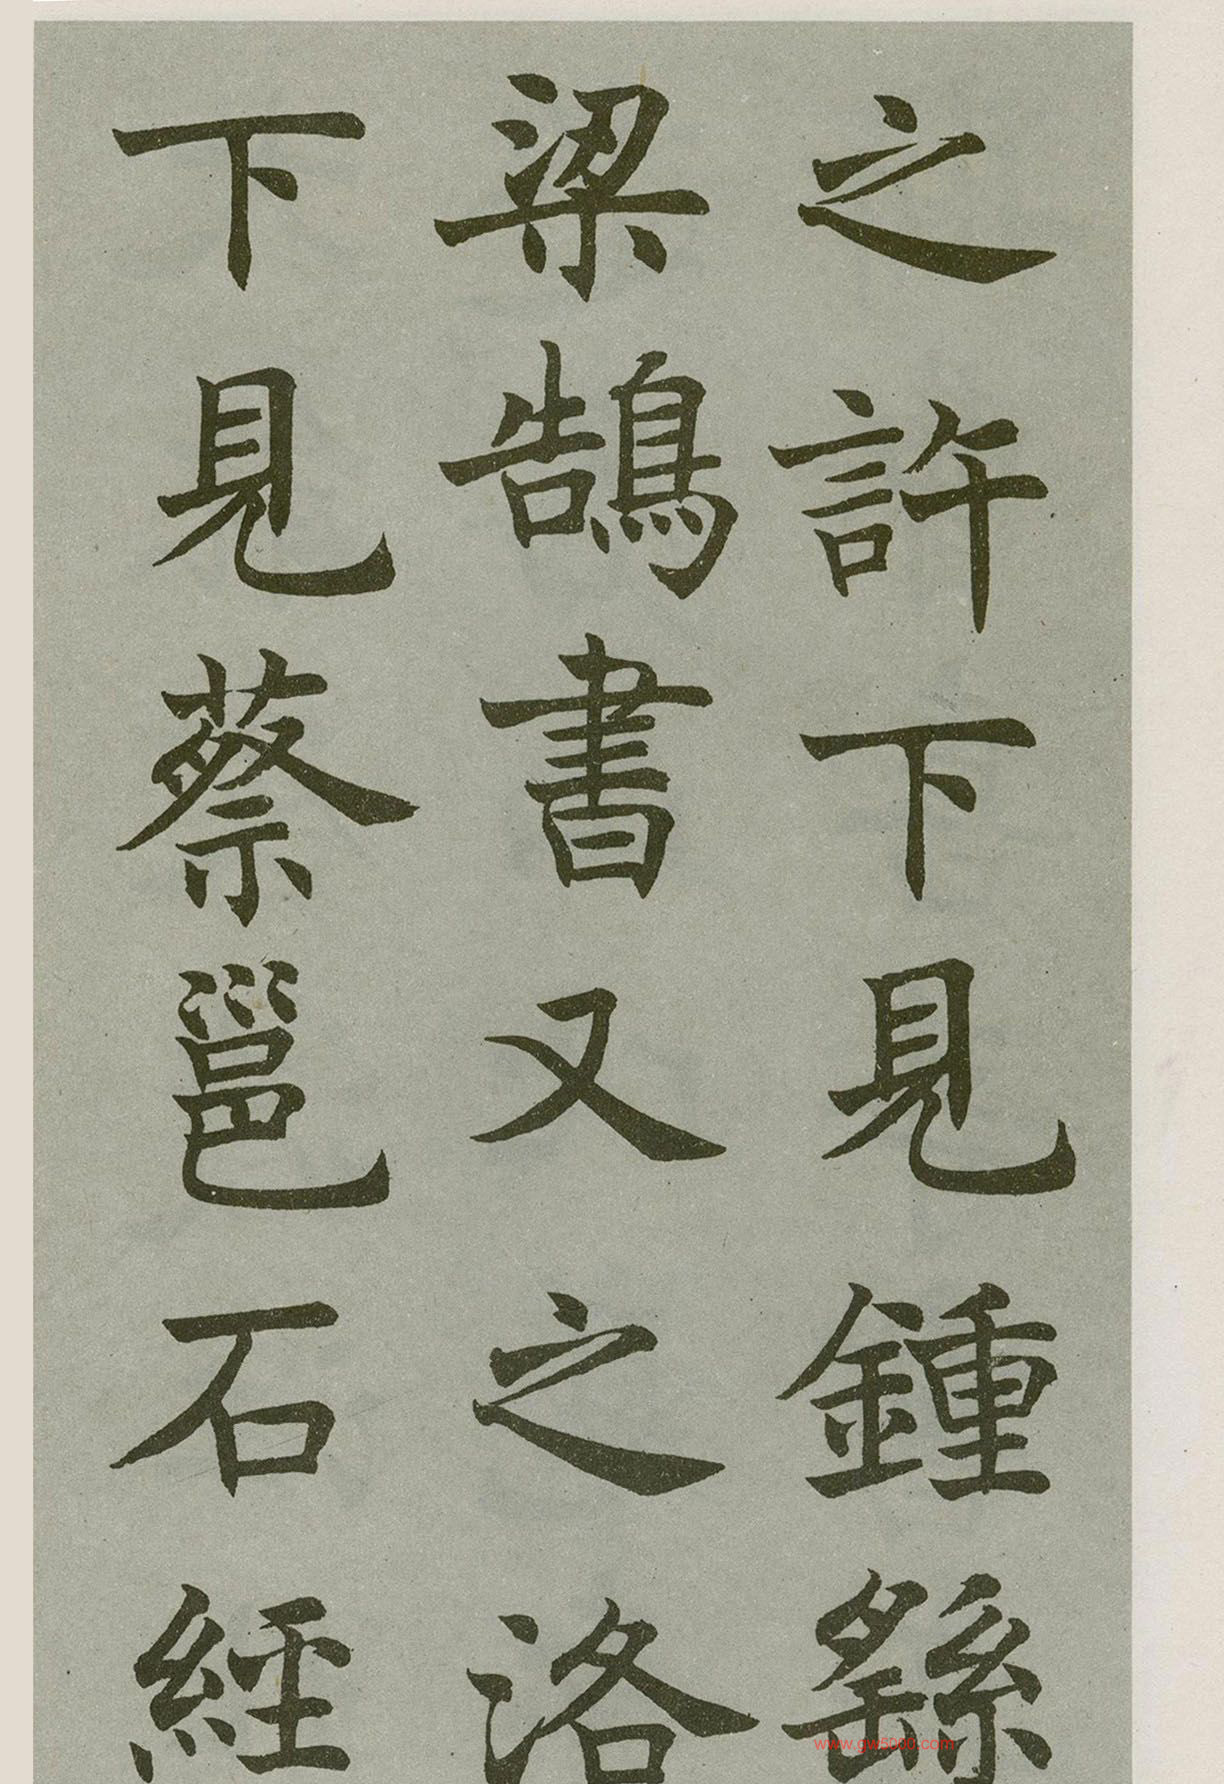 之許下見鍾繇
梁鵠書又之洛
下見蔡邕石經
www.gw5000.com